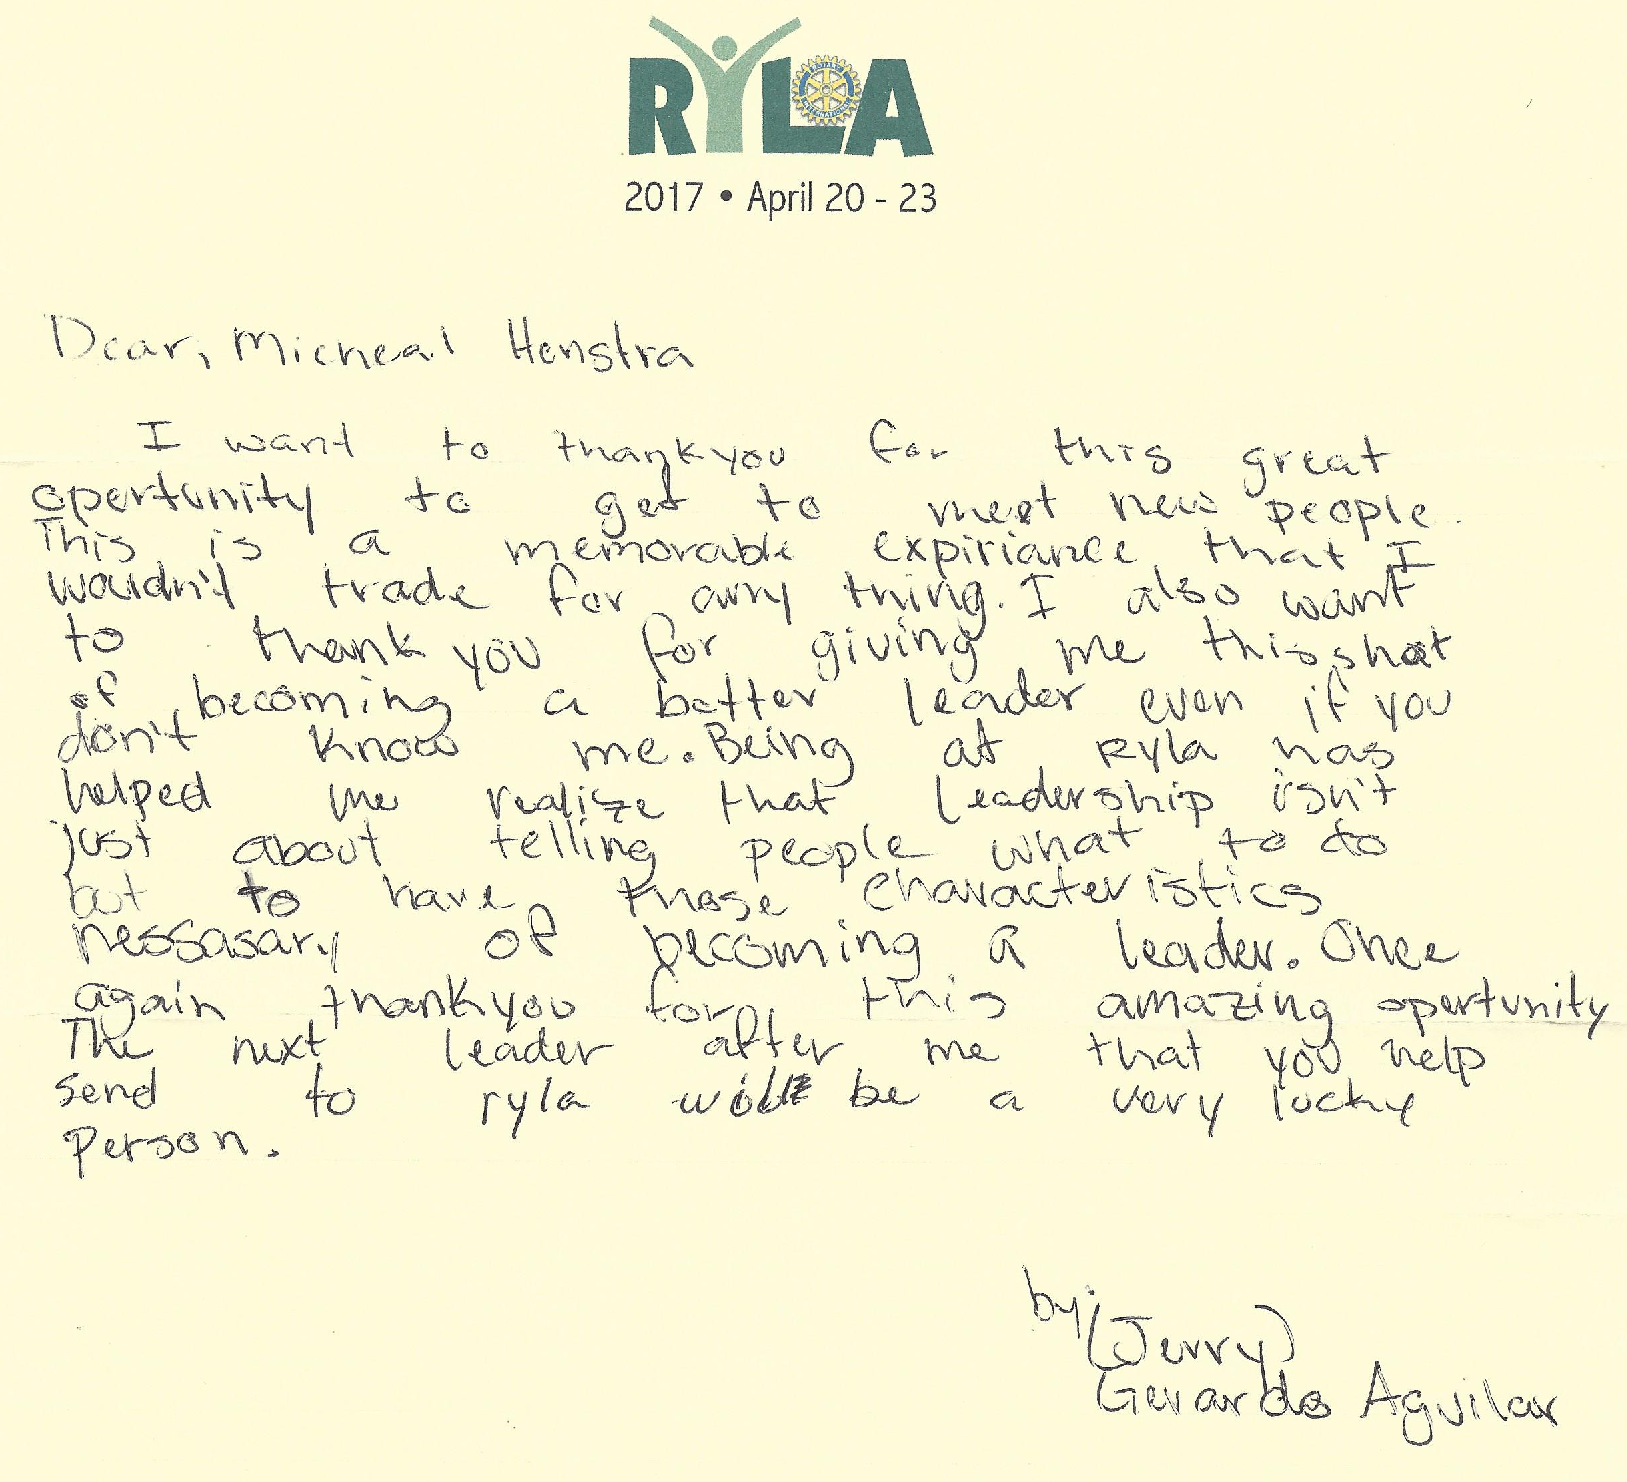 RYLA
ROTARY INTERNATIONAL
2017 • April 20 - 23
Dear, Micheal Henstra
I want to thankyou for this great
opertunity to get to meet new people.
This is a memorable expiriance that I
wouldn't trade for any thing. I also want
to thank you for giving me this shot
of becoming a better leader even if you
don't know me. Being at Ryla has
helped me realize that leadership isn't
just about telling people what to do
but to have those characteristics
nessasary of becoming a leader. Once
again thankyou for this amazing opertunity
The next leader after me that you help
send to ryla will be a very lucky
person.
by:
(Jerry)
Gerardo Aguilar